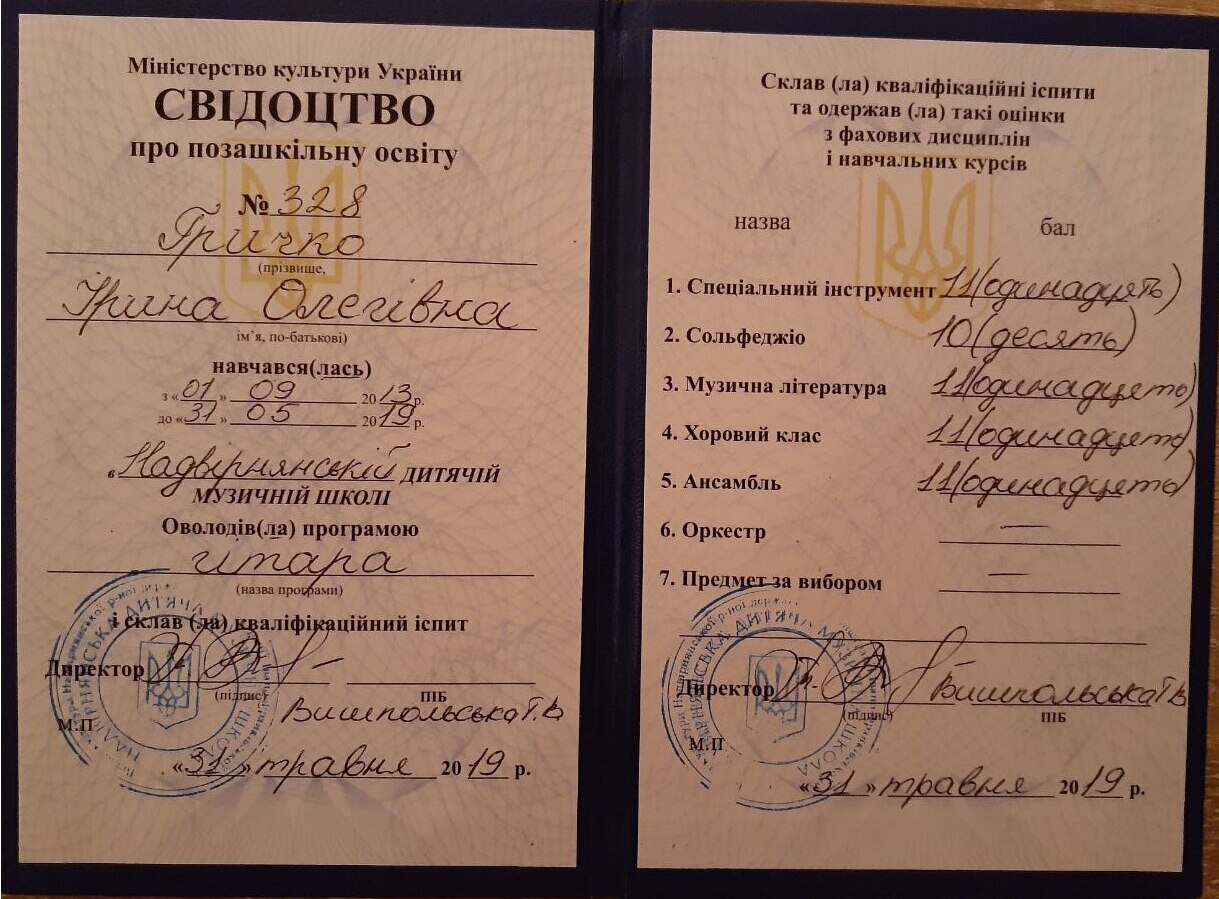 Міністерство культури України
СВІДОЦТВО
про позашкільну освіту
№ 328
Гричко
(прізвище,
Ірина Олегівна
ім’я, по-батькові)
навчався(лась)
з «01» 09 2013 р.
до «31» 05 2019 р.
в Надвірнянській ДИТЯЧІЙ
МУЗИЧНІЙ ШКОЛІ
Оволодів(ла) програмою
гітара
(назва програми)
і склав (ла) кваліфікаційний іспит
Директор
(підпис) ПІБ
Вишпольська Т.В
М.П
«31» травня 2019 р.
НАДВІРНЯНСЬКА ДИТЯЧА МУЗИЧНА ШКОЛА
Склав (ла) кваліфікаційні іспити
та одержав (ла) такі оцінки
з фахових дисциплін
і навчальних курсів
назва бал
1. Спеціальний інструмент 11 (одинадцять)
2. Сольфеджіо 10 (десять)
3. Музична література 11 (одинадцять)
4. Хоровий клас 11 (одинадцять)
5. Ансамбль 11 (одинадцять)
6. Оркестр —
7. Предмет за вибором —
Директор Вишпольська Т.В
(підпис) ПІБ
М.П
«31» травня 2019 р.
НАДВІРНЯНСЬКА ДИТЯЧА МУЗИЧНА ШКОЛА